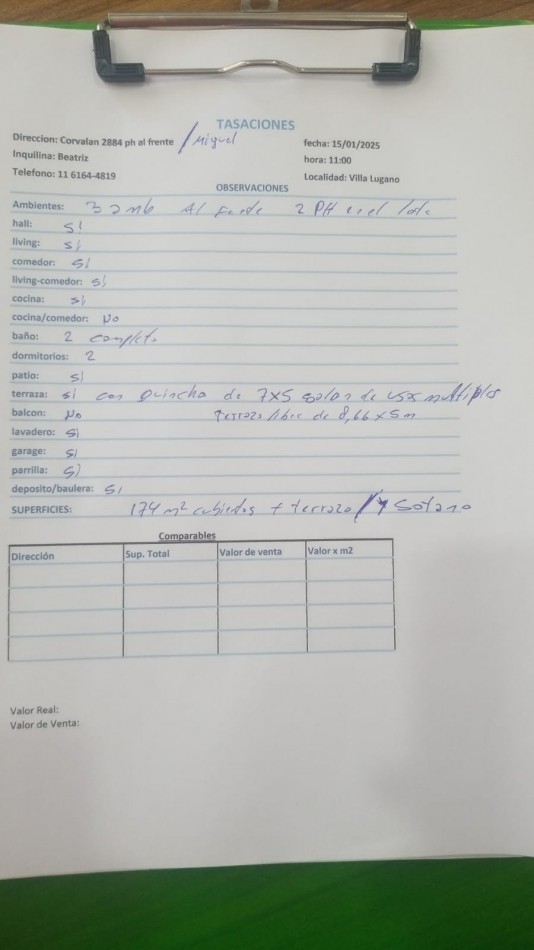 TASACIONES
Direccion: Corvalan 2884 ph al frente / Miguel
fecha: 15/01/2025
Inquilina: Beatriz
hora: 11:00
Telefono: 11 6164-4819
Localidad: Villa Lugano
OBSERVACIONES
Ambientes: 3 amb Al frente 2 PH en el lote
hall: si
living: si
comedor: si
living-comedor: si
cocina: si
cocina/comedor: No
baño: 2 completo
dormitorios: 2
patio: si
terraza: si con quincho de 7x5 salon de usos multiples
balcon: No terraza libre de 8,66 x 5m
lavadero: si
garage: si
parrilla: si
deposito/baulera: si
SUPERFICIES: 174 m2 cubiertos + terraza / y sotano
Comparables
Dirección Sup. Total Valor de venta Valor x m2
Valor Real:
Valor de Venta: